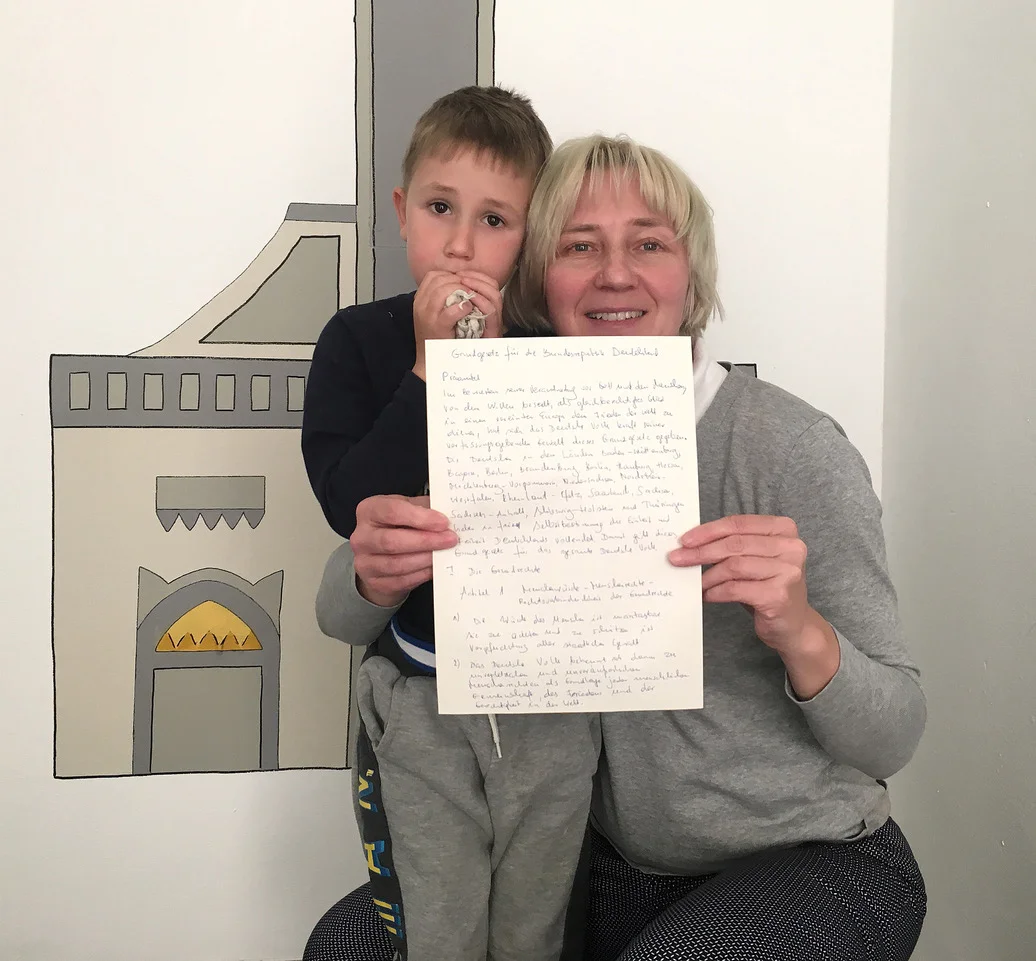 Grundgesetz für die Bundesrepublik Deutschland
Präambel
Im Bewusstsein seiner Verantwortung vor Gott und den Menschen,
von dem Willen beseelt, als gleichberechtigtes Glied
in einem vereinten Europa dem Frieden der Welt zu
dienen, hat sich das Deutsche Volk kraft seiner
verfassungsgebenden Gewalt dieses Grundgesetz gegeben.
Die Deutschen in den Ländern Baden-Württemberg,
Bayern, Berlin, Brandenburg, Hamburg, Hessen,
Mecklenburg-Vorpommern, Niedersachsen, Nordrhein-
Westfalen, Rheinland-Pfalz, Saarland, Sachsen,
Sachsen-Anhalt, Schleswig-Holstein und Thüringen
haben in Selbstbestimmung die Einheit und
Freiheit Deutschlands vollendet. Damit gilt dieses
Grundgesetz für das gesamte Deutsche Volk.
I Die Grundrechte
Artikel 1 Menschenwürde - Menschenrechte -
Rechtsverbindlichkeit der Grundrechte
1) Die Würde des Menschen ist unantastbar
Sie zu achten und zu schützen ist
Verpflichtung aller staatlichen Gewalt
2) Das Deutsche Volk bekennt sich darum zu
unverletzlichen und unveräußerlichen
Menschenrechten als Grundlage jeder menschlichen
Gemeinschaft, des Friedens und der
Gerechtigkeit in der Welt.